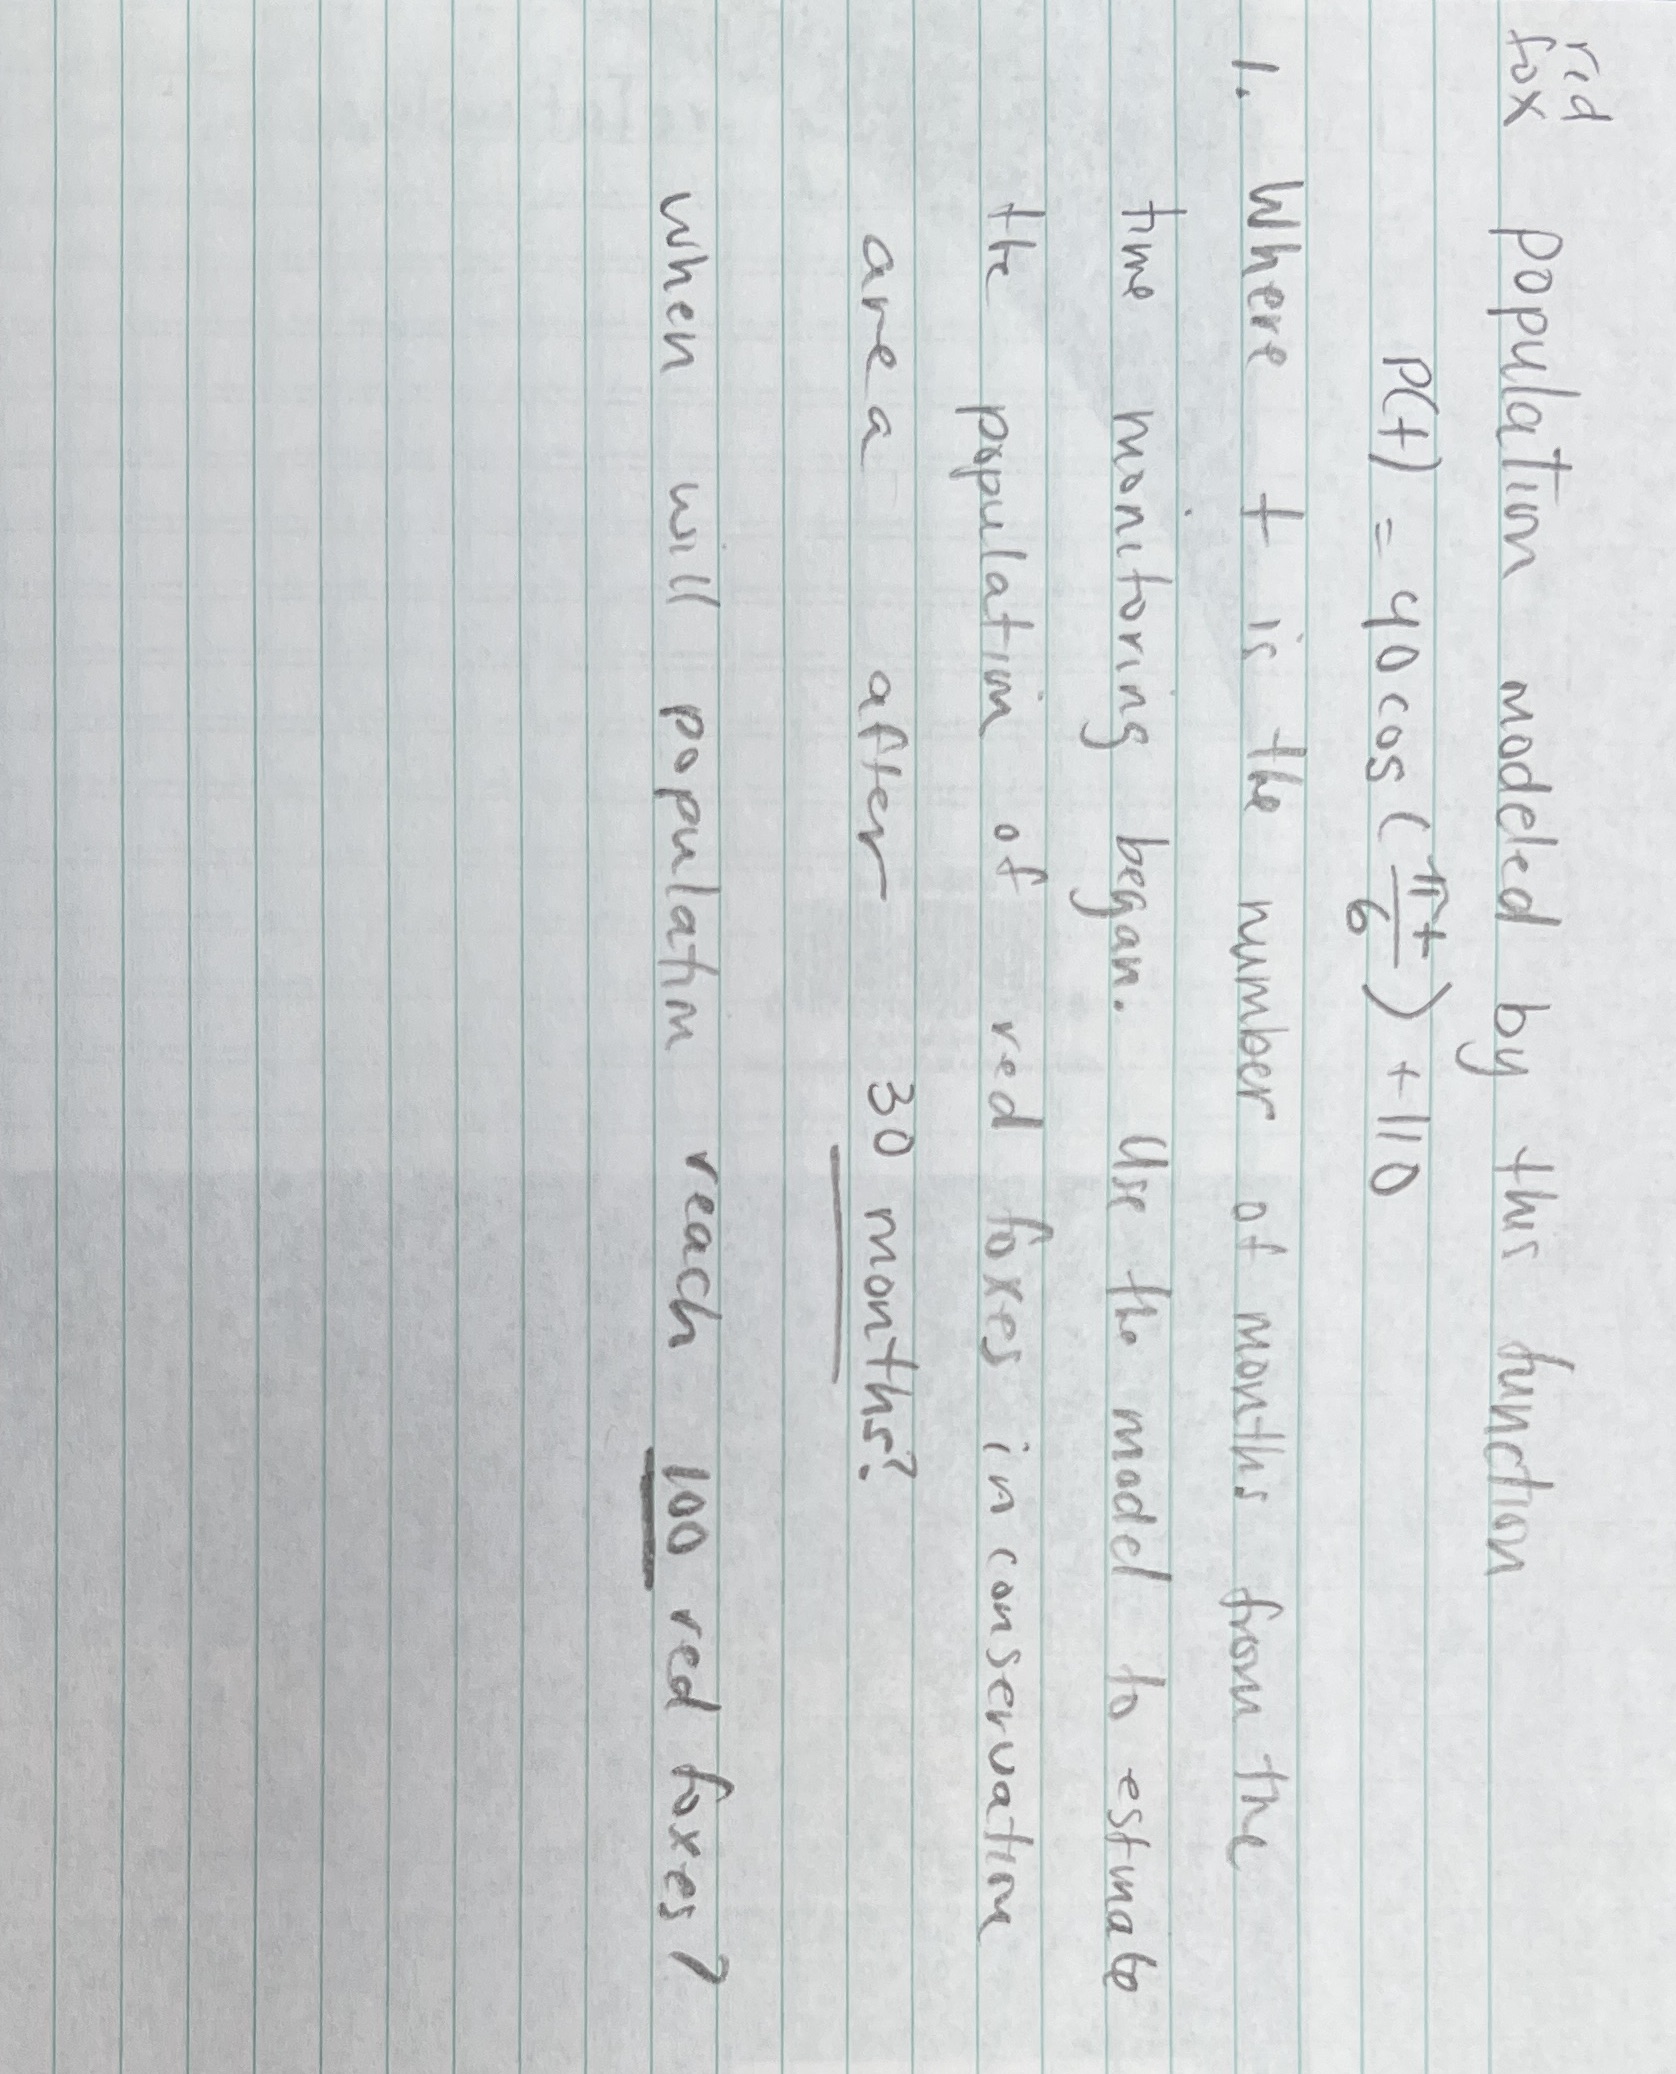 red
fox population modeled by this function
P(t) = 40 cos (πt/6) + 110
1. Where t is the number of months from the
time monitoring began. Use the model to estimate
the population of red foxes in conservation
area after 30 months?
when will population reach 100 red foxes?